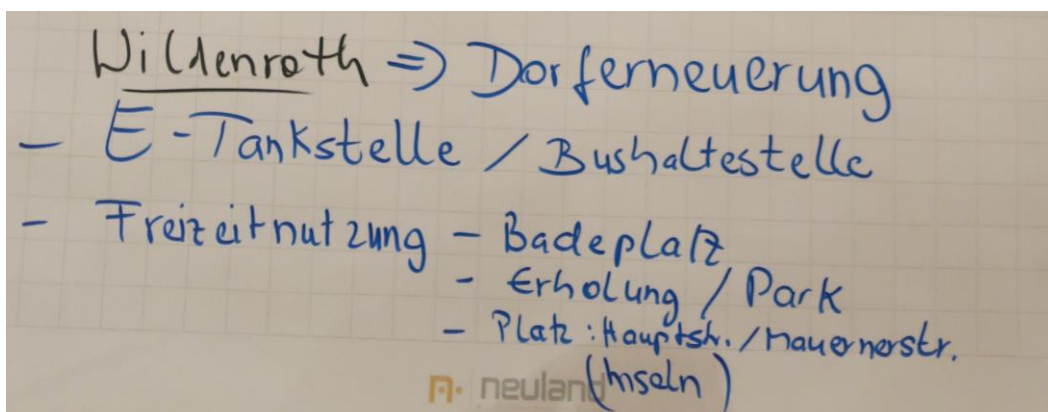 Wildenroth => Dorferneuerung
- E-Tankstelle / Bushaltestelle
- Freizeitnutzung - Badeplatz
- Erholung / Park
- Platz : Hauptstr. / Mauernerstr.
(Inseln)
neuland